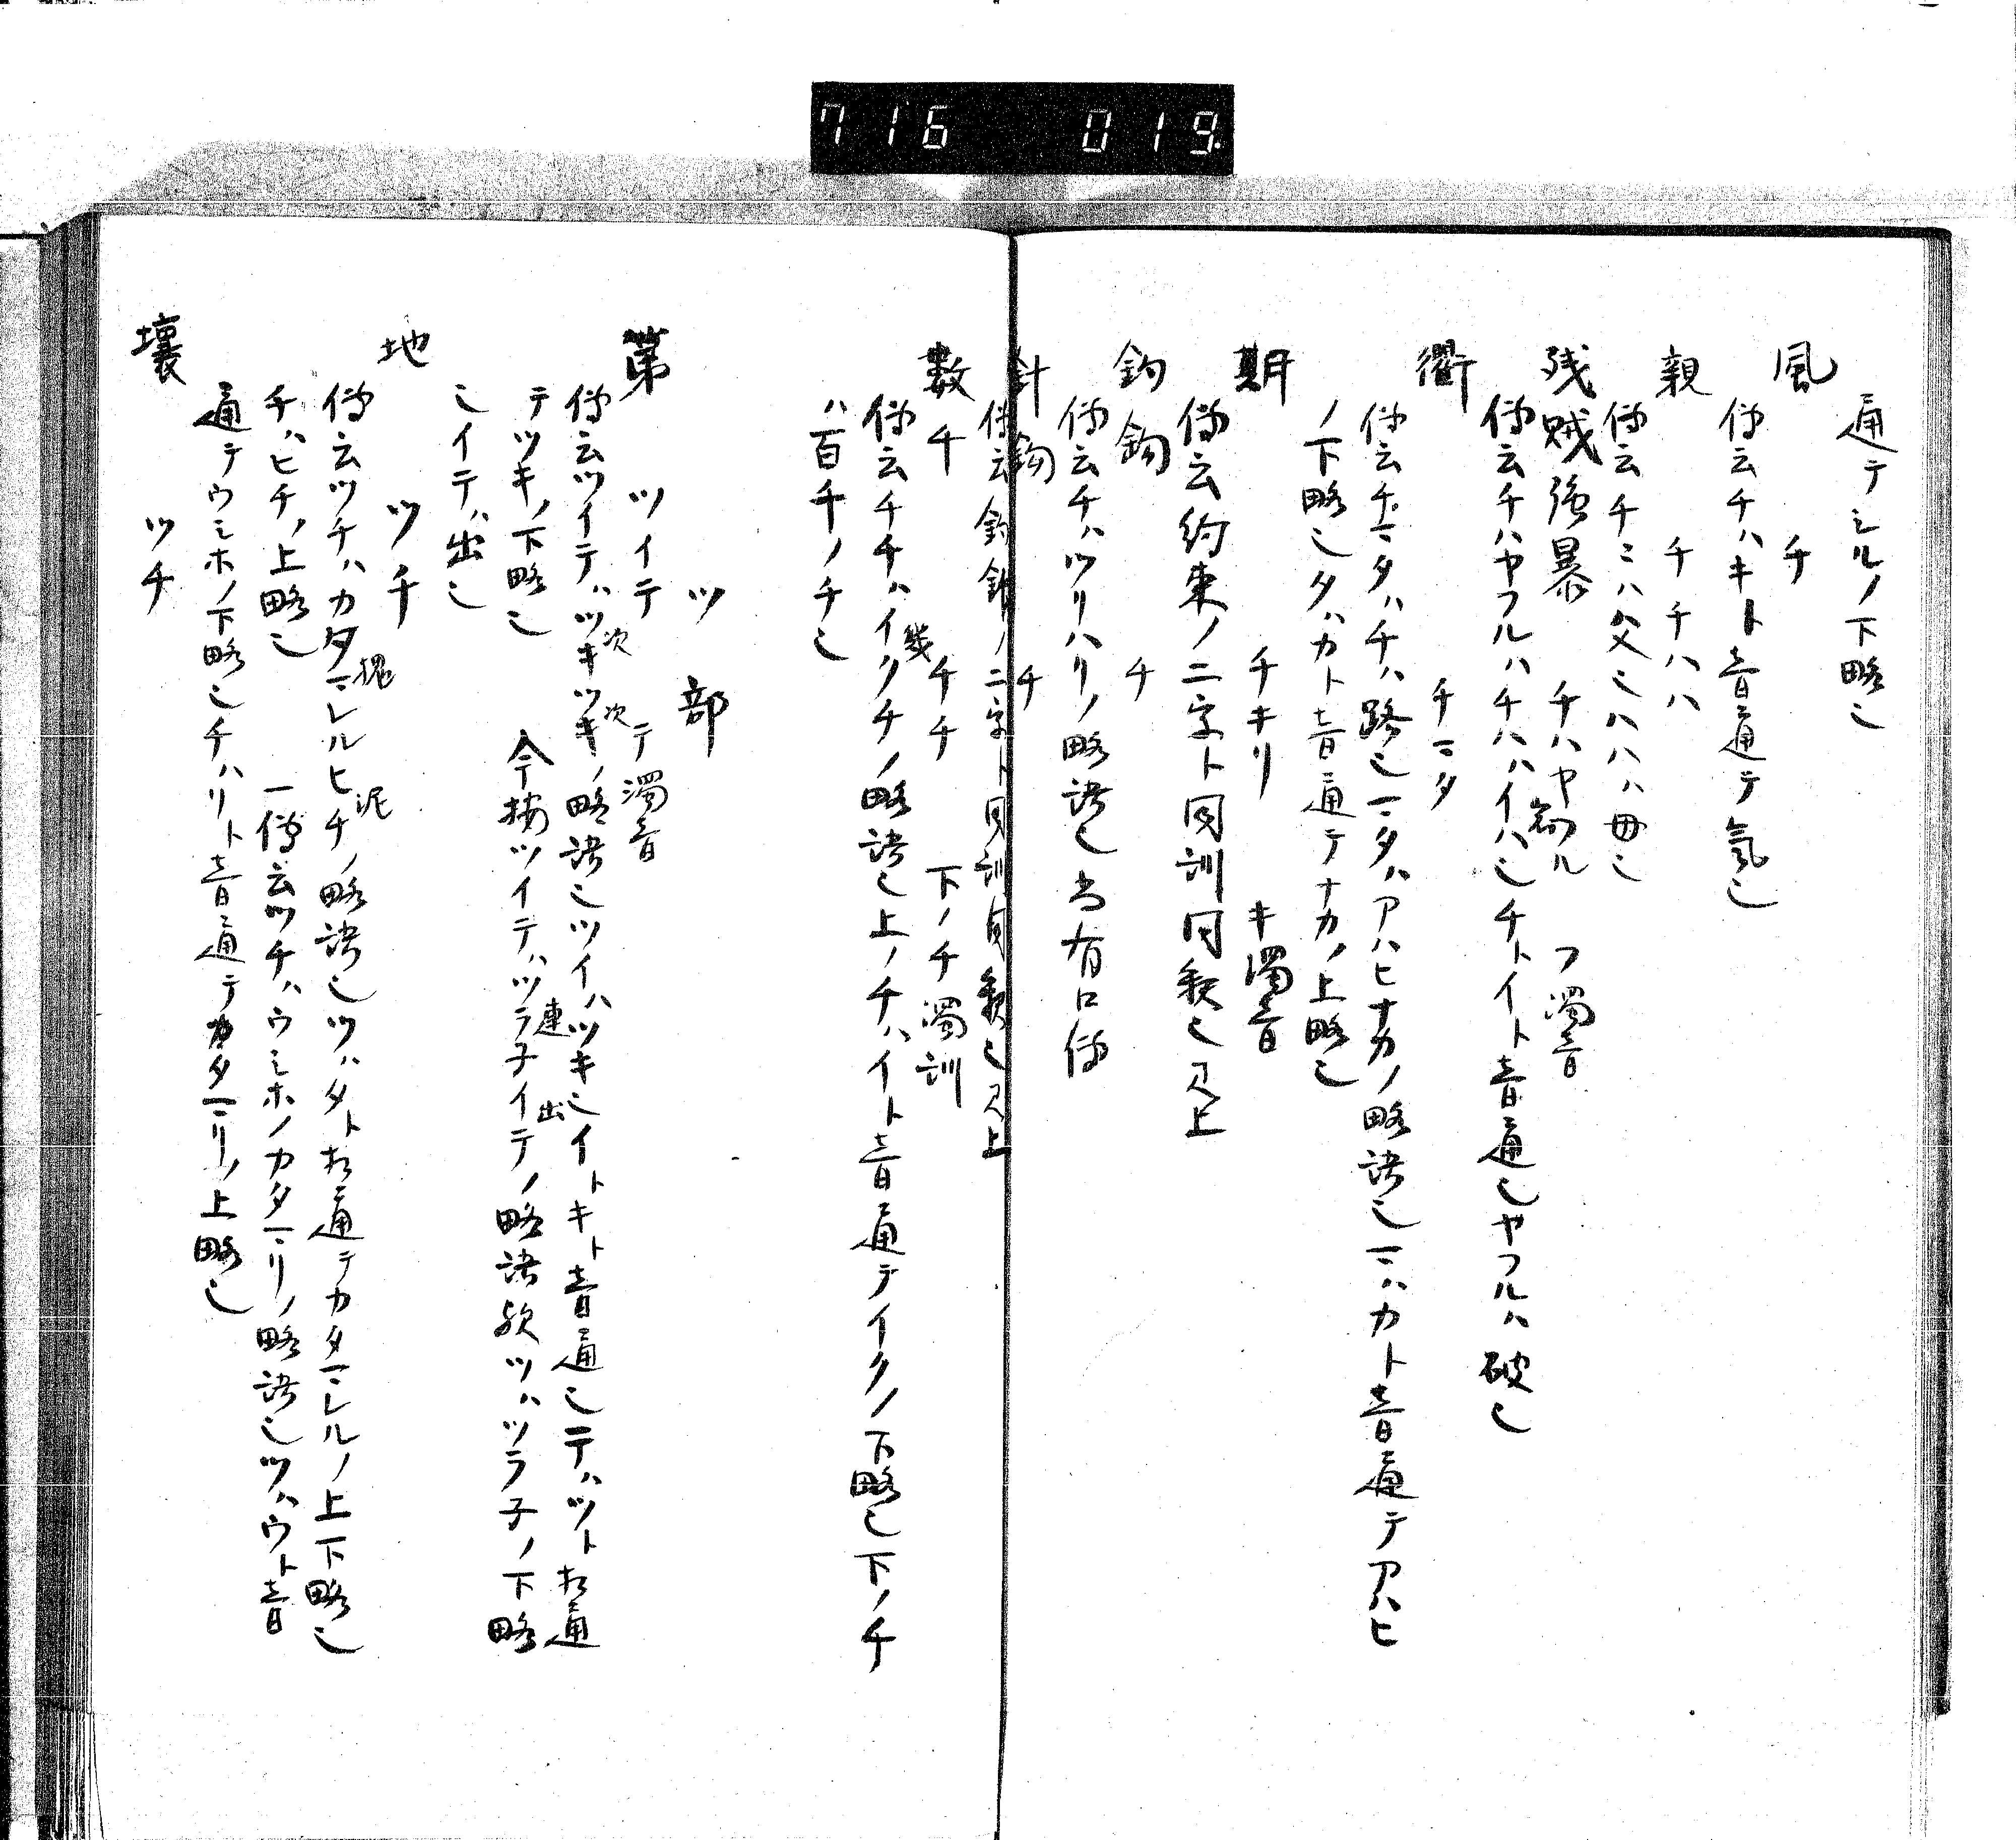 716 019
通テシルノ下略也
風 チ
傳云チハキト音通テ気也
親 チチハハ
傳云チヽハ父也ハハハ母也
残賊強暴 チハヤフル フ濁音
傳云チハヤフルハチハハイハ也チトイト音通也ヤフルハ破也
衢 チマタ
傳云チマタハチハ路也マタハアハヒナカノ略語也マハカト音通テアハヒ
ノ下略也タハカト音通テナカノ上略也
期 チキリ キ濁音
傳云約束ノ二字ト同訓同釈也見上
釣鈎 チ
傳云チハツリハリノ略語也尚有口傳
針鈎 チ
傳云釣鉤ノ二字ト同訓同釈也見上
数千 チチ 下ノチ濁訓
傳云チチハイクチノ略語也上ノチハイト音通テイクノ下略也下ノチ
幾
ハ百千ノチ也
ツ部
第 ツイテ テ濁音
傳云ツイテハツキツキノ略語也ツイハツキ也イトキト音通也テハツト相通
次 次
テツキノ下略也 今按ツイテハツラ子イテノ略語歟ツハツラ子ノ下略
連 出
也イテハ出也
地 ツチ
傳云ツチハカタマレルヒチノ略語也ツハタト相通テカタマレルノ上下略也
塊 泥
チハヒチノ上略也 一傳云ツチハウシホノカタマリノ略語也ツハウト音
通テウシホノ下略也チハリト音通テカタマリノ上略也
壤 ツチ